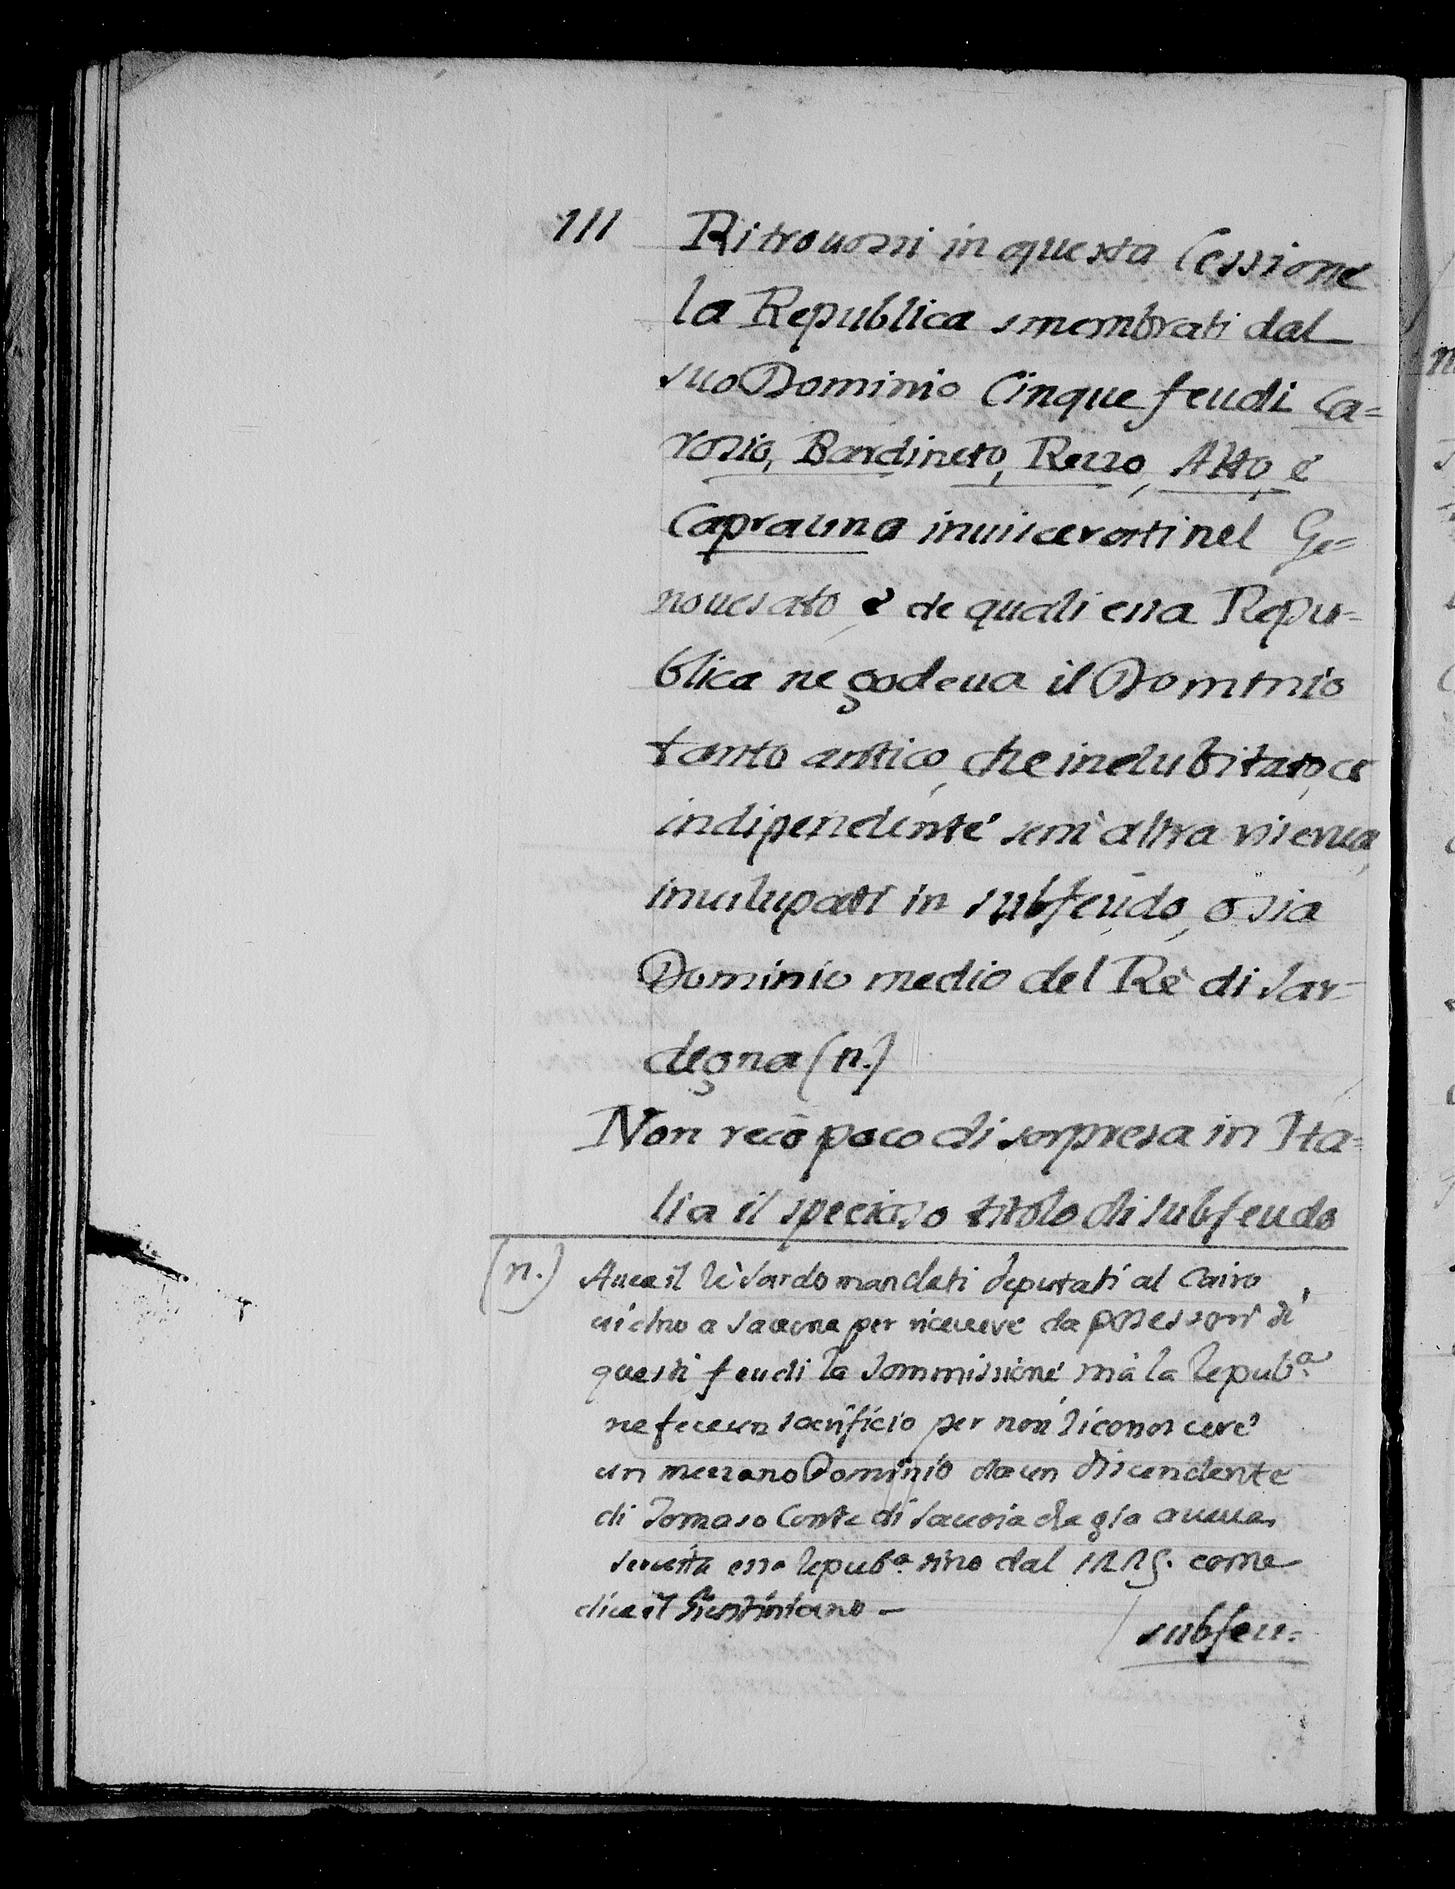 111 Ritrouossi in questa Cessione
la Republica smembrati dal
suo Dominio Cinque feudi Ca=
rosio, Bardineto, Rezzo, Alto, è
Caprauna inuiscerati nel Ge=
nouesato, è de quali essa Repu=
blica ne godeua il Dominio
tanto antico, che indubitato, ed
indipendente senz'altra
inuilupati in subfeudo, o sia
Dominio medio del Rè di Sar=
degna (n.)
Non recò poco di sorpresa in Ita=
lia il specioso titolo di subfeudo
(n.) Auea il Rè Sardo mandati deputati al Cairo
uicino a Sauona per riceuere da possessori di
questi feudi la Sommissione, mà la Repub.a
ne fece un sacrificio per non riconoscere
un mezzano Dominio da un discendente
di Tomaso Conte di Sauoia che già aueua
seruita essa Repub.a sino dal 1225. come
dice il Giustiniano –
subfeu=